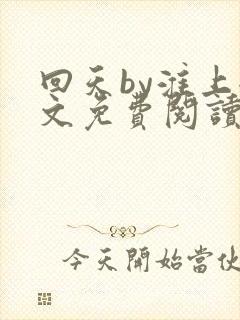 回天by淮上
文免費閱讀
今天開始當伙